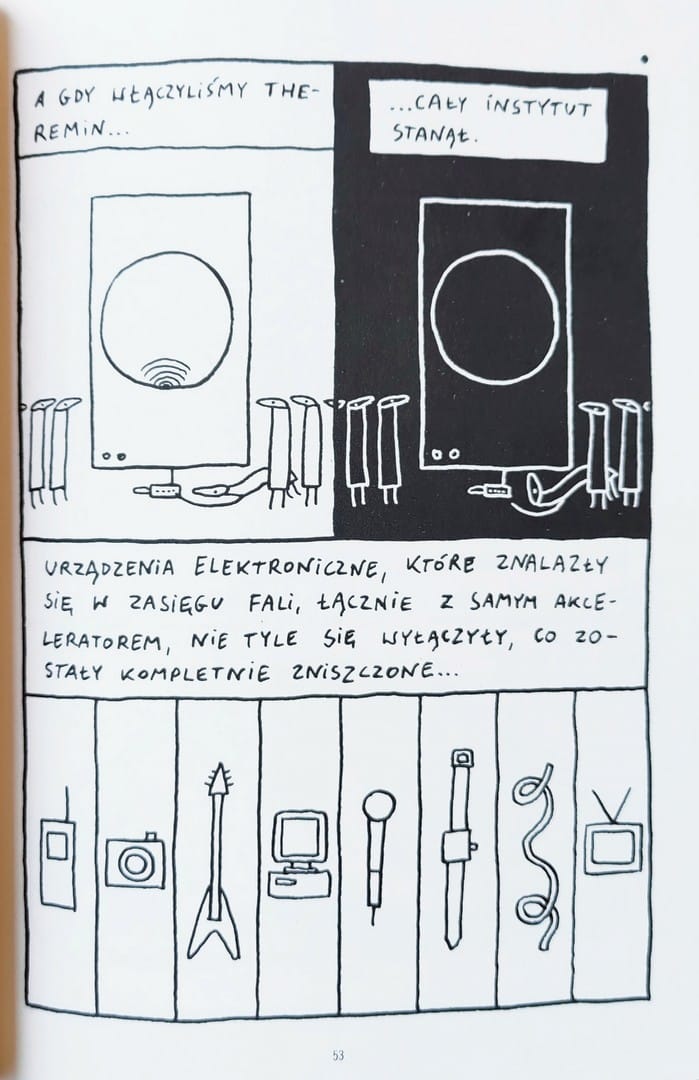 A GDY WŁĄCZYLIŚMY THE-
REMIN...
...CAŁY INSTYTUT
STANĄŁ.
URZĄDZENIA ELEKTRONICZNE, KTÓRE ZNALAZŁY
SIĘ W ZASIĘGU FALI, ŁĄCZNIE Z SAMYM AKCE-
LERATOREM, NIE TYLE SIĘ WYŁĄCZYŁY, CO ZO-
STAŁY KOMPLETNIE ZNISZCZONE...
53